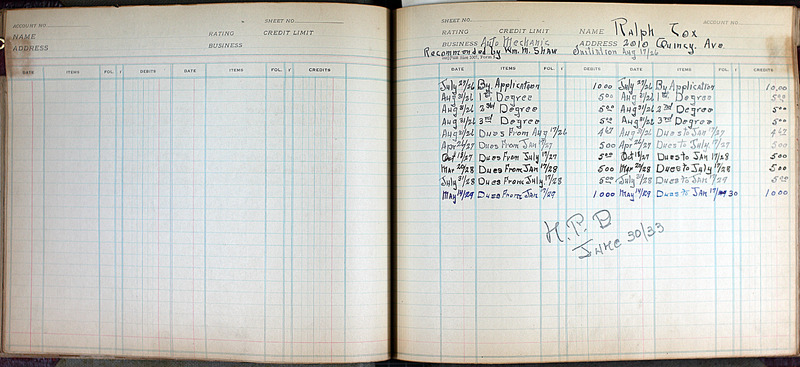 ACCOUNT NO.
SHEET NO.
NAME
RATING CREDIT LIMIT
ADDRESS
BUSINESS
DATE ITEMS FOL. DEBITS DATE ITEMS FOL. CREDITS
SHEET NO. ACCOUNT NO.
RATING CREDIT LIMIT NAME Ralph Cox
BUSINESS Auto Mechanic ADDRESS 2010 Quincy. Ave.
Recommended by Wm. M. Shaw Initiation Aug 17/26
DATE ITEMS FOL. DEBITS DATE ITEMS FOL. CREDITS
July 29/26 By Application 10 00 July 29/26 By Application 10,00
Aug 31/26 1st Degree 5 00 Aug 31/26 1st Degree 5 00
Aug 31/26 2nd Degree 5 00 Aug 31/26 2nd Degree 5 00
Aug 31/26 3rd Degree 5 00 Aug 31/26 3rd Degree 5 00
Aug 31/26 Dues From Aug 17/26 Aug 31/26 Dues to Jan 17/27
Dues From Jan 17/27 5 00 Dues to July 17/27 5 00
Dues From July 17/27 5 00 Dues to Jan 17/28 5 00
Dues From Jan 17/28 5 00 Dues to July 17/28 5 00
July 31/28 Dues From July 17/28 5 00 July 31/28 Dues to Jan 17/29 5 00
May 14/29 Dues From Jan 17/29 10 00 May 14/29 Dues to Jan 17 30 10 00
June 30/33